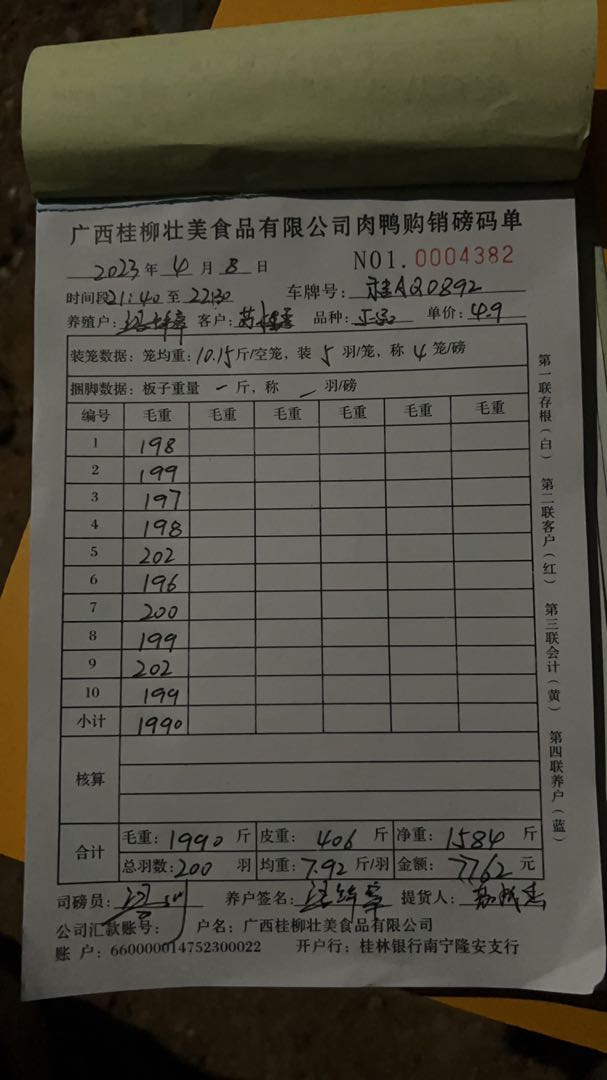 广西桂柳壮美食品有限公司肉鸭购销磅码单
2023年4月8日 NO1.0004382
时间段21:40至22:30 车牌号：桂AQ0892
养殖户： 客户： 品种： 单价：4.9
装笼数据：笼均重：10.15斤/空笼，装5羽/笼，称4笼/磅
捆脚数据：板子重量 一 斤，称 一 羽/磅
编号 毛重 毛重 毛重 毛重 毛重 毛重
1 198
2 199
3 197
4 198
5 202
6 196
7 200
8 199
9 202
10 199
小计 1990
核算
合计 毛重：1990斤 皮重：406斤 净重：1584斤
总羽数：200羽 均重：7.92斤/羽 金额：7762元
司磅员： 养户签名： 提货人：
公司汇款账号： 户名：广西桂柳壮美食品有限公司
账 户：660000014752300022 开户行：桂林银行南宁隆安支行
第一联存根（白） 第二联客户（红） 第三联会计（黄） 第四联养户（蓝）